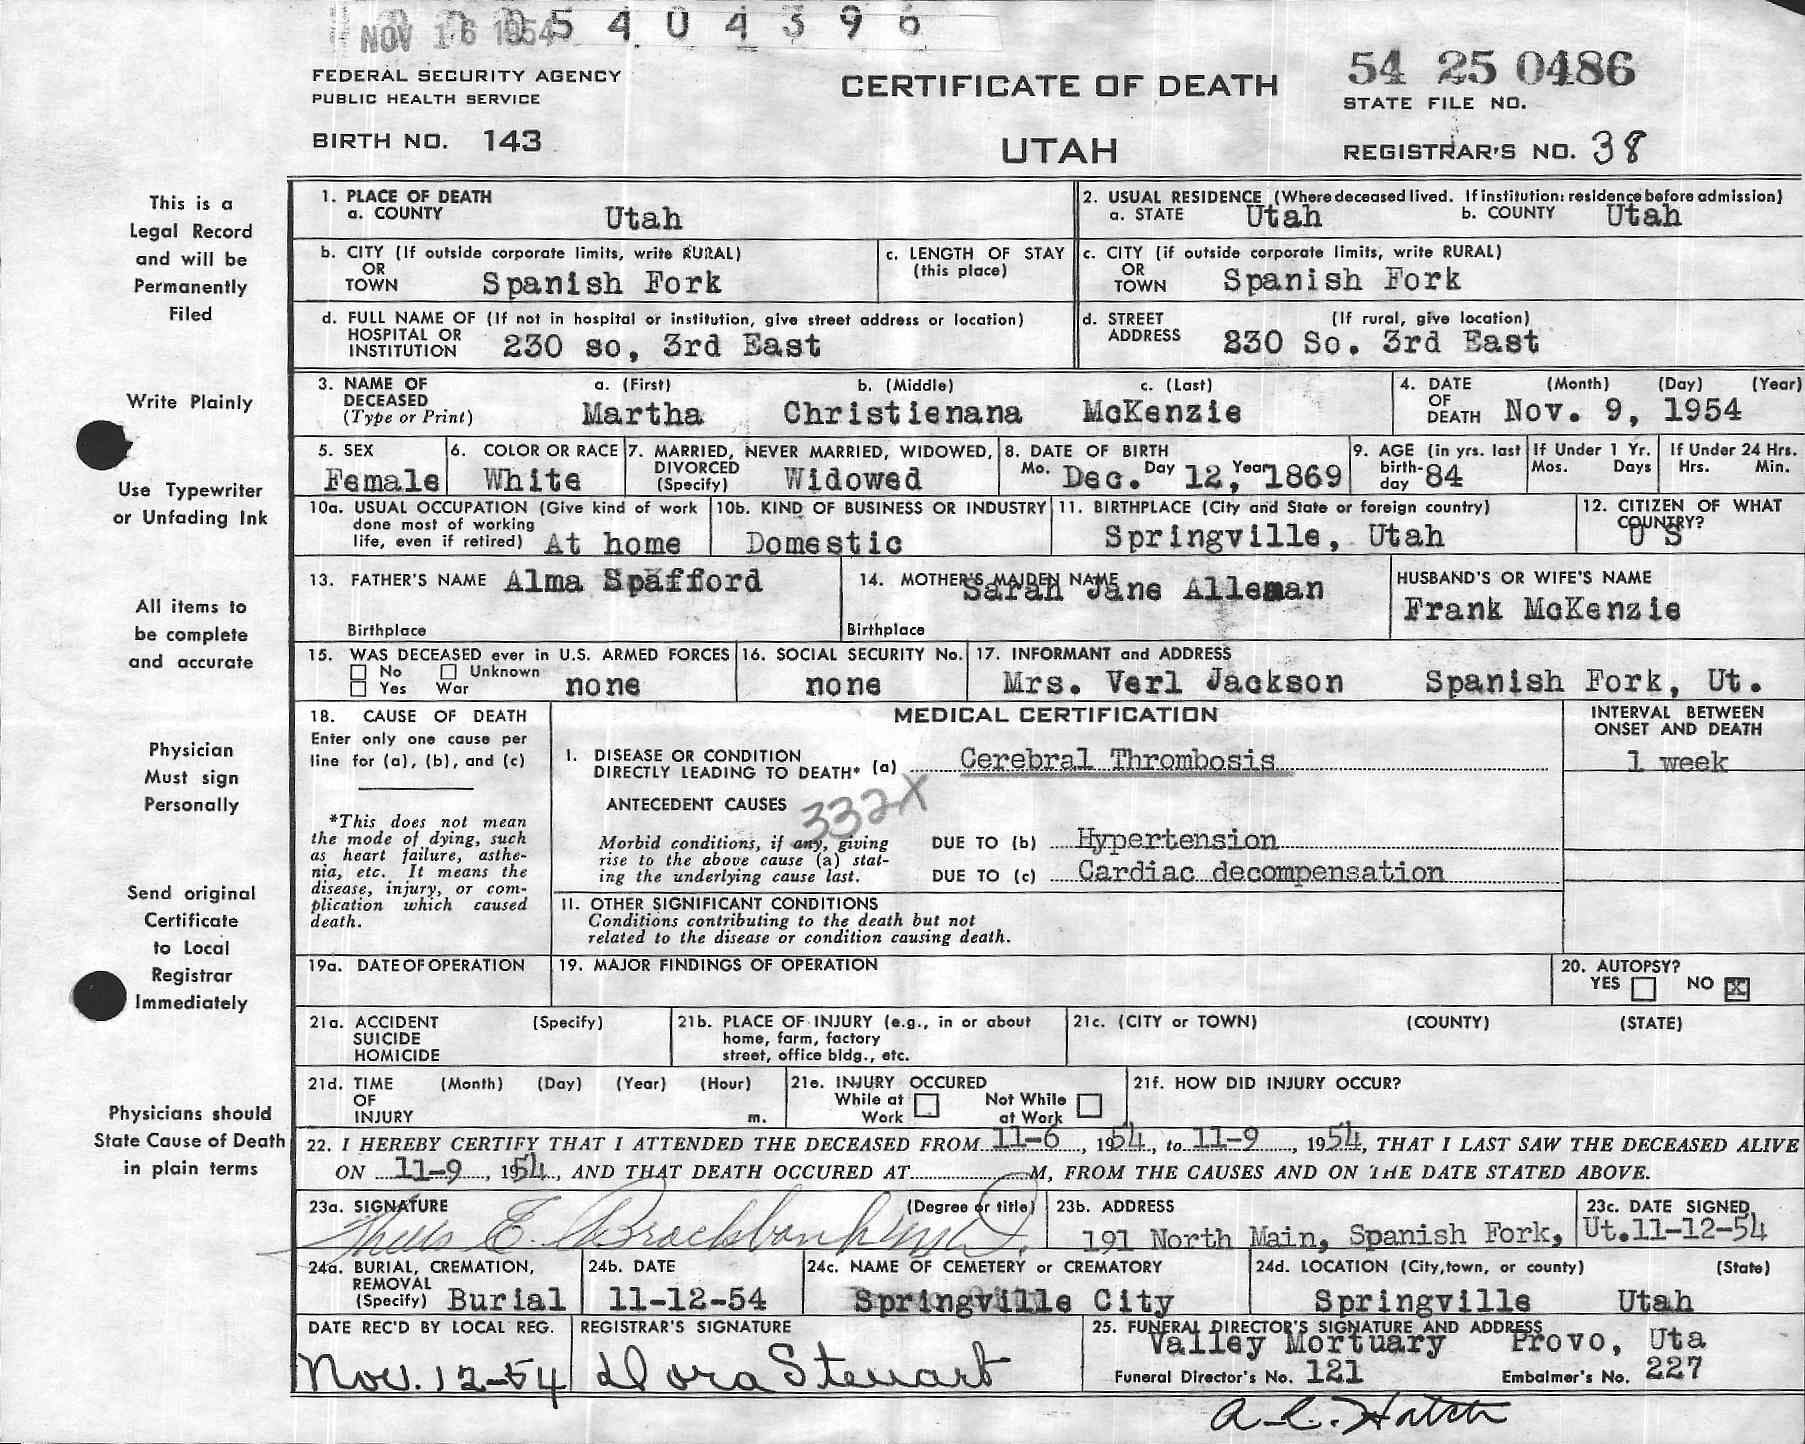 NOV 16 1954 5 4 0 4 3 9 6
FEDERAL SECURITY AGENCY
PUBLIC HEALTH SERVICE
BIRTH NO. 143
CERTIFICATE OF DEATH
UTAH
54 25 0486
STATE FILE NO.
REGISTRAR'S NO. 38
This is a
Legal Record
and will be
Permanently
Filed
Write Plainly
Use Typewriter
or Unfading Ink
All items to
be complete
and accurate
Physician
Must sign
Personally
Send original
Certificate
to Local
Registrar
Immediately
Physicians should
State Cause of Death
in plain terms
1. PLACE OF DEATH
a. COUNTY Utah
2. USUAL RESIDENCE (Where deceased lived. If institution: residence before admission)
a. STATE Utah b. COUNTY Utah
b. CITY (If outside corporate limits, write RURAL)
OR
TOWN Spanish Fork
c. LENGTH OF STAY
(this place)
c. CITY (if outside corporate limits, write RURAL)
OR
TOWN Spanish Fork
d. FULL NAME OF (If not in hospital or institution, give street address or location)
HOSPITAL OR
INSTITUTION 230 so, 3rd East
d. STREET (If rural, give location)
ADDRESS 230 So. 3rd East
3. NAME OF a. (First) b. (Middle) c. (Last)
DECEASED
(Type or Print) Martha Christienana McKenzie
4. DATE (Month) (Day) (Year)
OF
DEATH Nov. 9, 1954
5. SEX
Female
6. COLOR OR RACE
White
7. MARRIED, NEVER MARRIED, WIDOWED,
DIVORCED
(Specify) Widowed
8. DATE OF BIRTH
Mo. Dec. Day 12, Year 1869
9. AGE (in yrs. last
birth-
day 84
If Under 1 Yr.
Mos. Days
If Under 24 Hrs.
Hrs. Min.
10a. USUAL OCCUPATION (Give kind of work
done most of working
life, even if retired) At home
10b. KIND OF BUSINESS OR INDUSTRY
Domestic
11. BIRTHPLACE (City and State or foreign country)
Springville, Utah
12. CITIZEN OF WHAT
COUNTRY?
U S
13. FATHER'S NAME Alma Spafford
Birthplace
14. MOTHER'S MAIDEN NAME
Sarah Jane Alleman
Birthplace
HUSBAND'S OR WIFE'S NAME
Frank McKenzie
15. WAS DECEASED ever in U.S. ARMED FORCES
No Unknown
Yes War none
16. SOCIAL SECURITY No.
none
17. INFORMANT and ADDRESS
Mrs. Verl Jackson Spanish Fork, Ut.
18. CAUSE OF DEATH
Enter only one cause per
line for (a), (b), and (c)
*This does not mean
the mode of dying, such
as heart failure, asthe-
nia, etc. It means the
disease, injury, or com-
plication which caused
death.
MEDICAL CERTIFICATION
INTERVAL BETWEEN
ONSET AND DEATH
I. DISEASE OR CONDITION
DIRECTLY LEADING TO DEATH* (a) Cerebral Thrombosis 1 week
ANTECEDENT CAUSES 332X
Morbid conditions, if any, giving
rise to the above cause (a) stat-
ing the underlying cause last.
DUE TO (b) Hypertension
DUE TO (c) Cardiac decompensation
11. OTHER SIGNIFICANT CONDITIONS
Conditions contributing to the death but not
related to the disease or condition causing death.
19a. DATE OF OPERATION
19. MAJOR FINDINGS OF OPERATION
20. AUTOPSY?
YES NO X
21a. ACCIDENT (Specify)
SUICIDE
HOMICIDE
21b. PLACE OF INJURY (e.g., in or about
home, farm, factory
street, office bldg., etc.
21c. (CITY or TOWN) (COUNTY) (STATE)
21d. TIME (Month) (Day) (Year) (Hour)
OF
INJURY m.
21e. INJURY OCCURED
While at Not While
Work at Work
21f. HOW DID INJURY OCCUR?
22. I HEREBY CERTIFY THAT I ATTENDED THE DECEASED FROM 11-6, 1954, to 11-9, 1954, THAT I LAST SAW THE DECEASED ALIVE
ON 11-9, 1954, AND THAT DEATH OCCURED AT M, FROM THE CAUSES AND ON THE DATE STATED ABOVE.
23a. SIGNATURE (Degree or title)
E. Brockbank M.D.
23b. ADDRESS
191 North Main, Spanish Fork,
23c. DATE SIGNED
Ut. 11-12-54
24a. BURIAL, CREMATION,
REMOVAL
(Specify) Burial
24b. DATE
11-12-54
24c. NAME OF CEMETERY or CREMATORY
Springville City
24d. LOCATION (City, town, or county) (State)
Springville Utah
DATE REC'D BY LOCAL REG.
Nov. 12-54
REGISTRAR'S SIGNATURE
Dora Stewart
25. FUNERAL DIRECTOR'S SIGNATURE AND ADDRESS
Valley Mortuary Provo, Uta
Funeral Director's No. 121 Embalmer's No. 227
A. C. Hatch